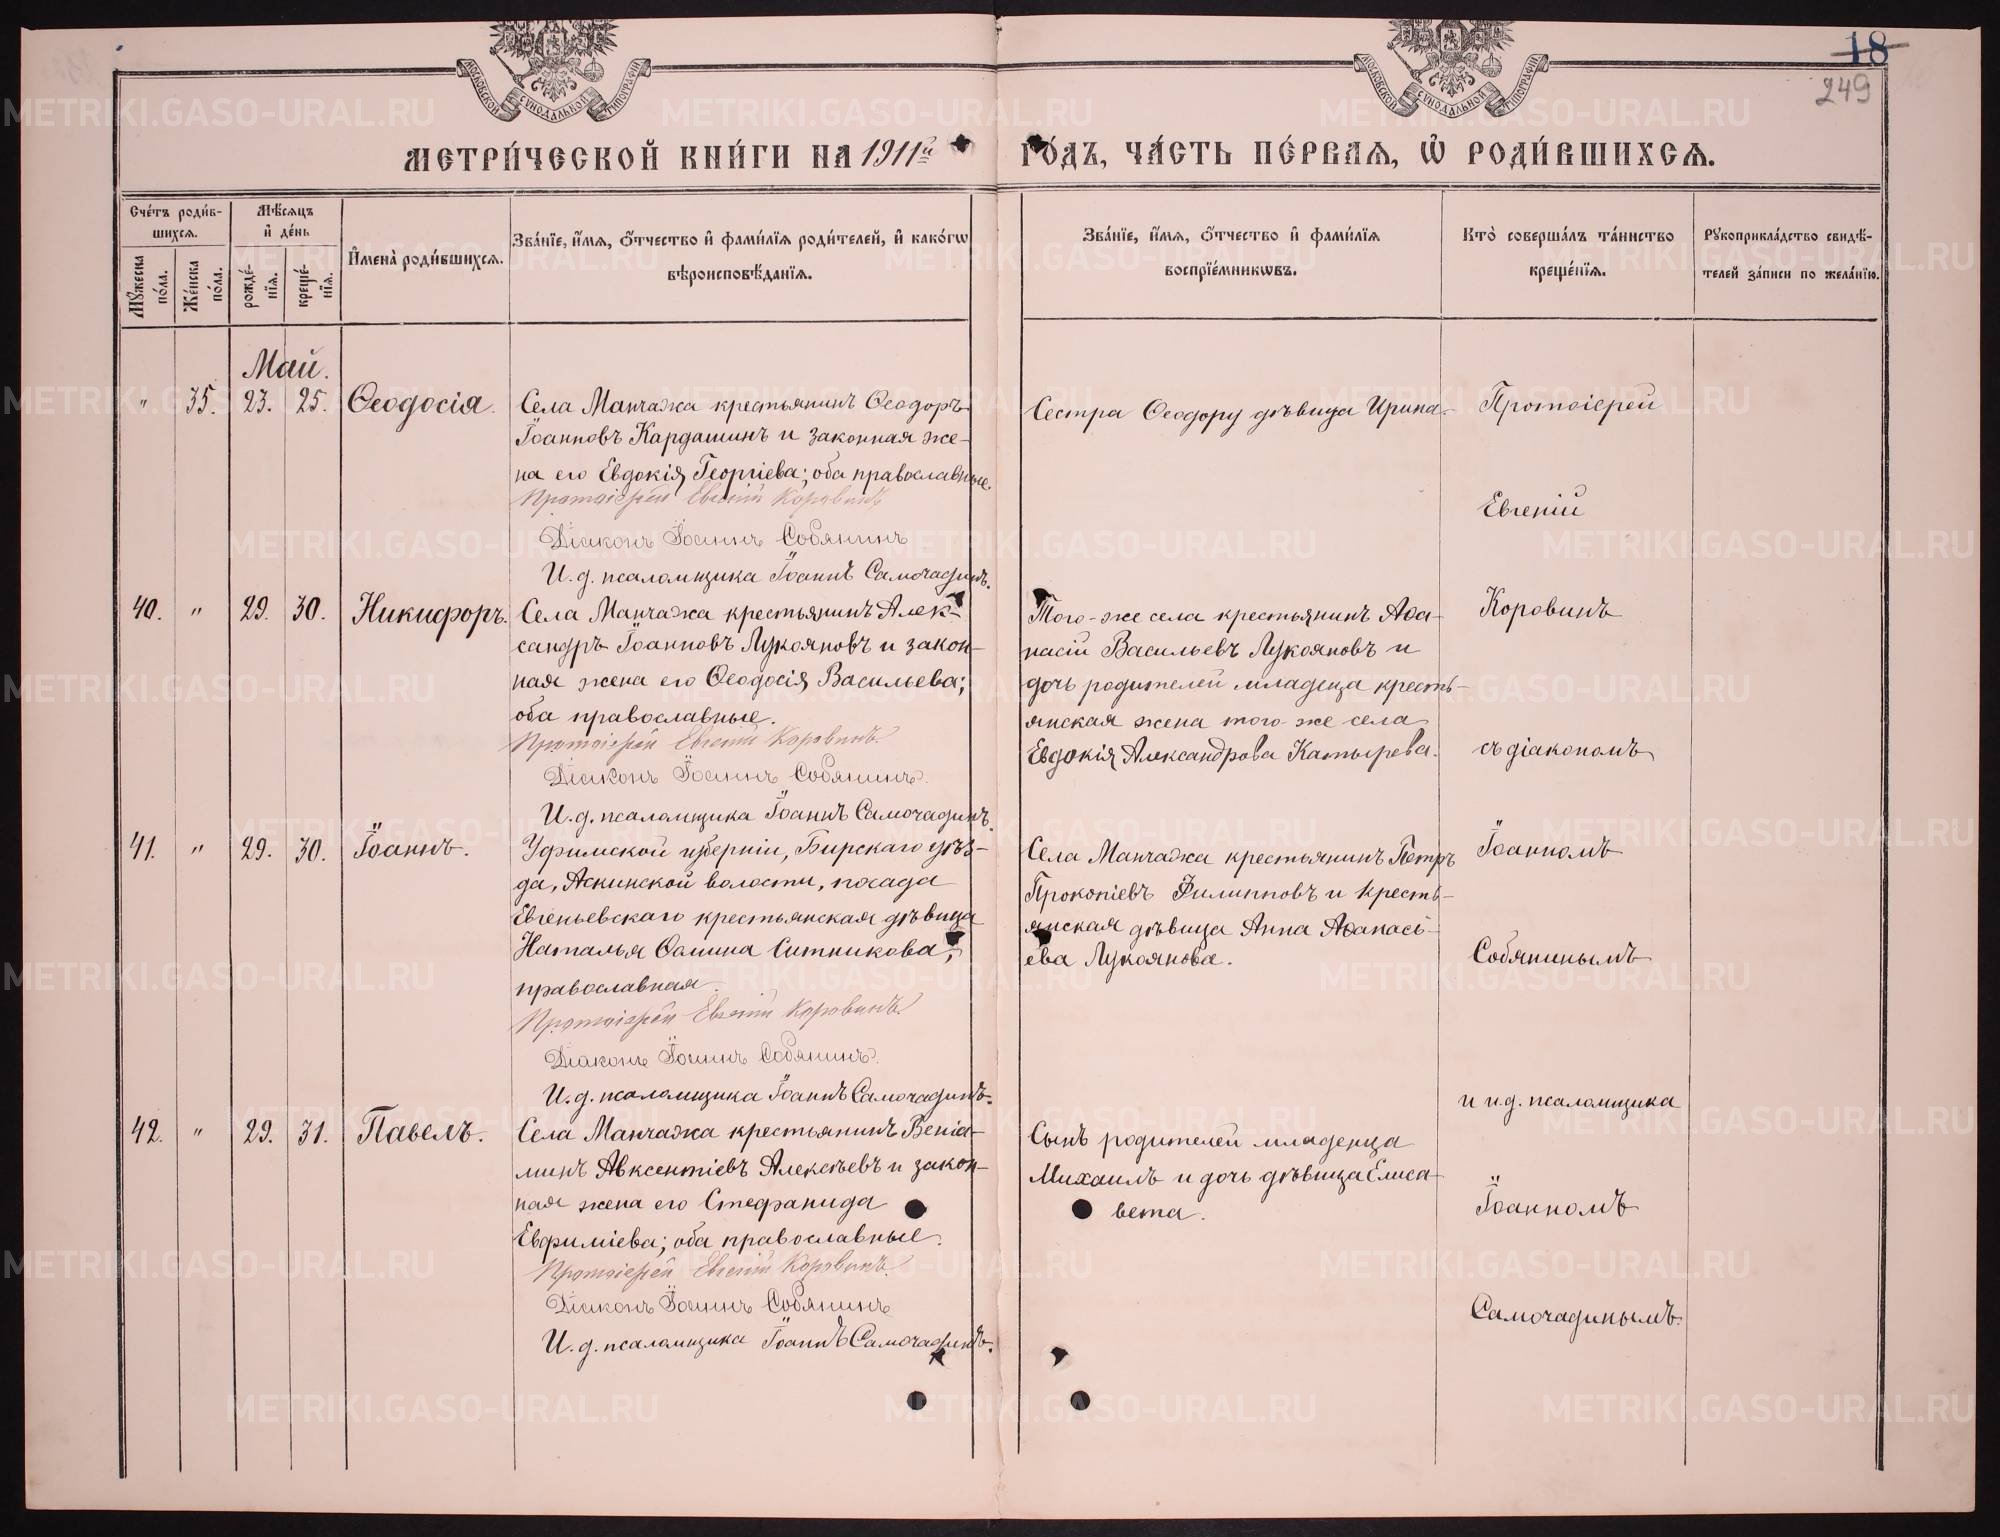 МОСКОВСКОЙ СѴНОДАЛЬНОЙ ТИПОГРАФІИ
МОСКОВСКОЙ СѴНОДАЛЬНОЙ ТИПОГРАФІИ
18
249
МЕТРИ́ЧЕСКОЙ КНИ́ГИ НА 1911й ГО́ДЪ, ЧА́СТЬ ПЕ́РВАѦ, Ѡ҆ РОДИ́ВШИХСѦ.
Сче́тъ роди́в-
шихсѧ.
Мꙋ́жеска по́ла.
Же́нска по́ла.
Мѣ́сѧцъ
и҆ де́нь
рожде́-
нїѧ.
креще́-
нїѧ.
И҆мена̀ роди́вшихсѧ.
Зва́нїе, и҆́мѧ, ѻ҆́тчество и҆ фами́лїѧ роди́телей, и҆ како́гѡ
вѣроисповѣ́данїѧ.
Зва́нїе, и҆́мѧ, ѻ҆́тчество и҆ фами́лїѧ
воспрїе́мникѡвъ.
Кто̀ соверша́лъ та́инство
креще́нїѧ.
Рꙋкоприкла́дство свидѣ́-
телей за́писи по жела́нїю.
Май.
" 35. 23. 25. Ѳеодосія.
Села Манчажа крестьянинъ Ѳеодоръ
Іоанновъ Кардашинъ и законная же-
на его Евдокія Георгіева; оба православные.
Протоіерей Евгеній Коровинъ
Діаконъ Іоаннъ Собянинъ
И. д. псаломщика Іоаннъ Самочадинъ.
Сестра Ѳеодору дѣвица Ирина.
40. " 29. 30. Никифоръ.
Села Манчажа крестьянинъ Алек-
сандръ Іоанновъ Лукояновъ и закон-
ная жена его Ѳеодосія Васильева;
оба православные.
Протоіерей Евгеній Коровинъ.
Діаконъ Іоаннъ Собянинъ.
И. д. псаломщика Іоаннъ Самочадинъ.
Того-же села крестьянинъ Аѳа-
насій Васильевъ Лукояновъ и
дочь родителей младенца кресть-
янская жена того-же села
Евдокія Александрова Катырева.
41. " 29. 30. Іоаннъ.
Уфимской губерніи, Бирскаго уѣз-
да, Аскинской волости, посада
Евгеньевскаго крестьянская дѣвица
Наталья Ѳомина Ситникова,
православная.
Протоіерей Евгеній Коровинъ.
Діаконъ Іоаннъ Собянинъ.
И. д. псаломщика Іоаннъ Самочадинъ.
Села Манчажа крестьянинъ Петръ
Прокопіевъ Филипповъ и кресть-
янская дѣвица Анна Аѳанась-
ева Лукоянова.
42. " 29. 31. Павелъ.
Села Манчажа крестьянинъ Веніа-
минъ Авксентіевъ Алексѣевъ и закон-
ная жена его Стефанида
Евфиміева; оба православные.
Протоіерей Евгеній Коровинъ.
Діаконъ Іоаннъ Собянинъ
И. д. псаломщика Іоаннъ Самочадинъ.
Сынъ родителей младенца
Михаилъ и дочь дѣвица Елиса-
вета.
Протоіерей
Евгеній
Коровинъ
съ діакономъ
Іоанномъ
Собянинымъ
и и. д. псаломщика
Іоанномъ
Самочадинымъ.
METRIKI.GASO-URAL.RU